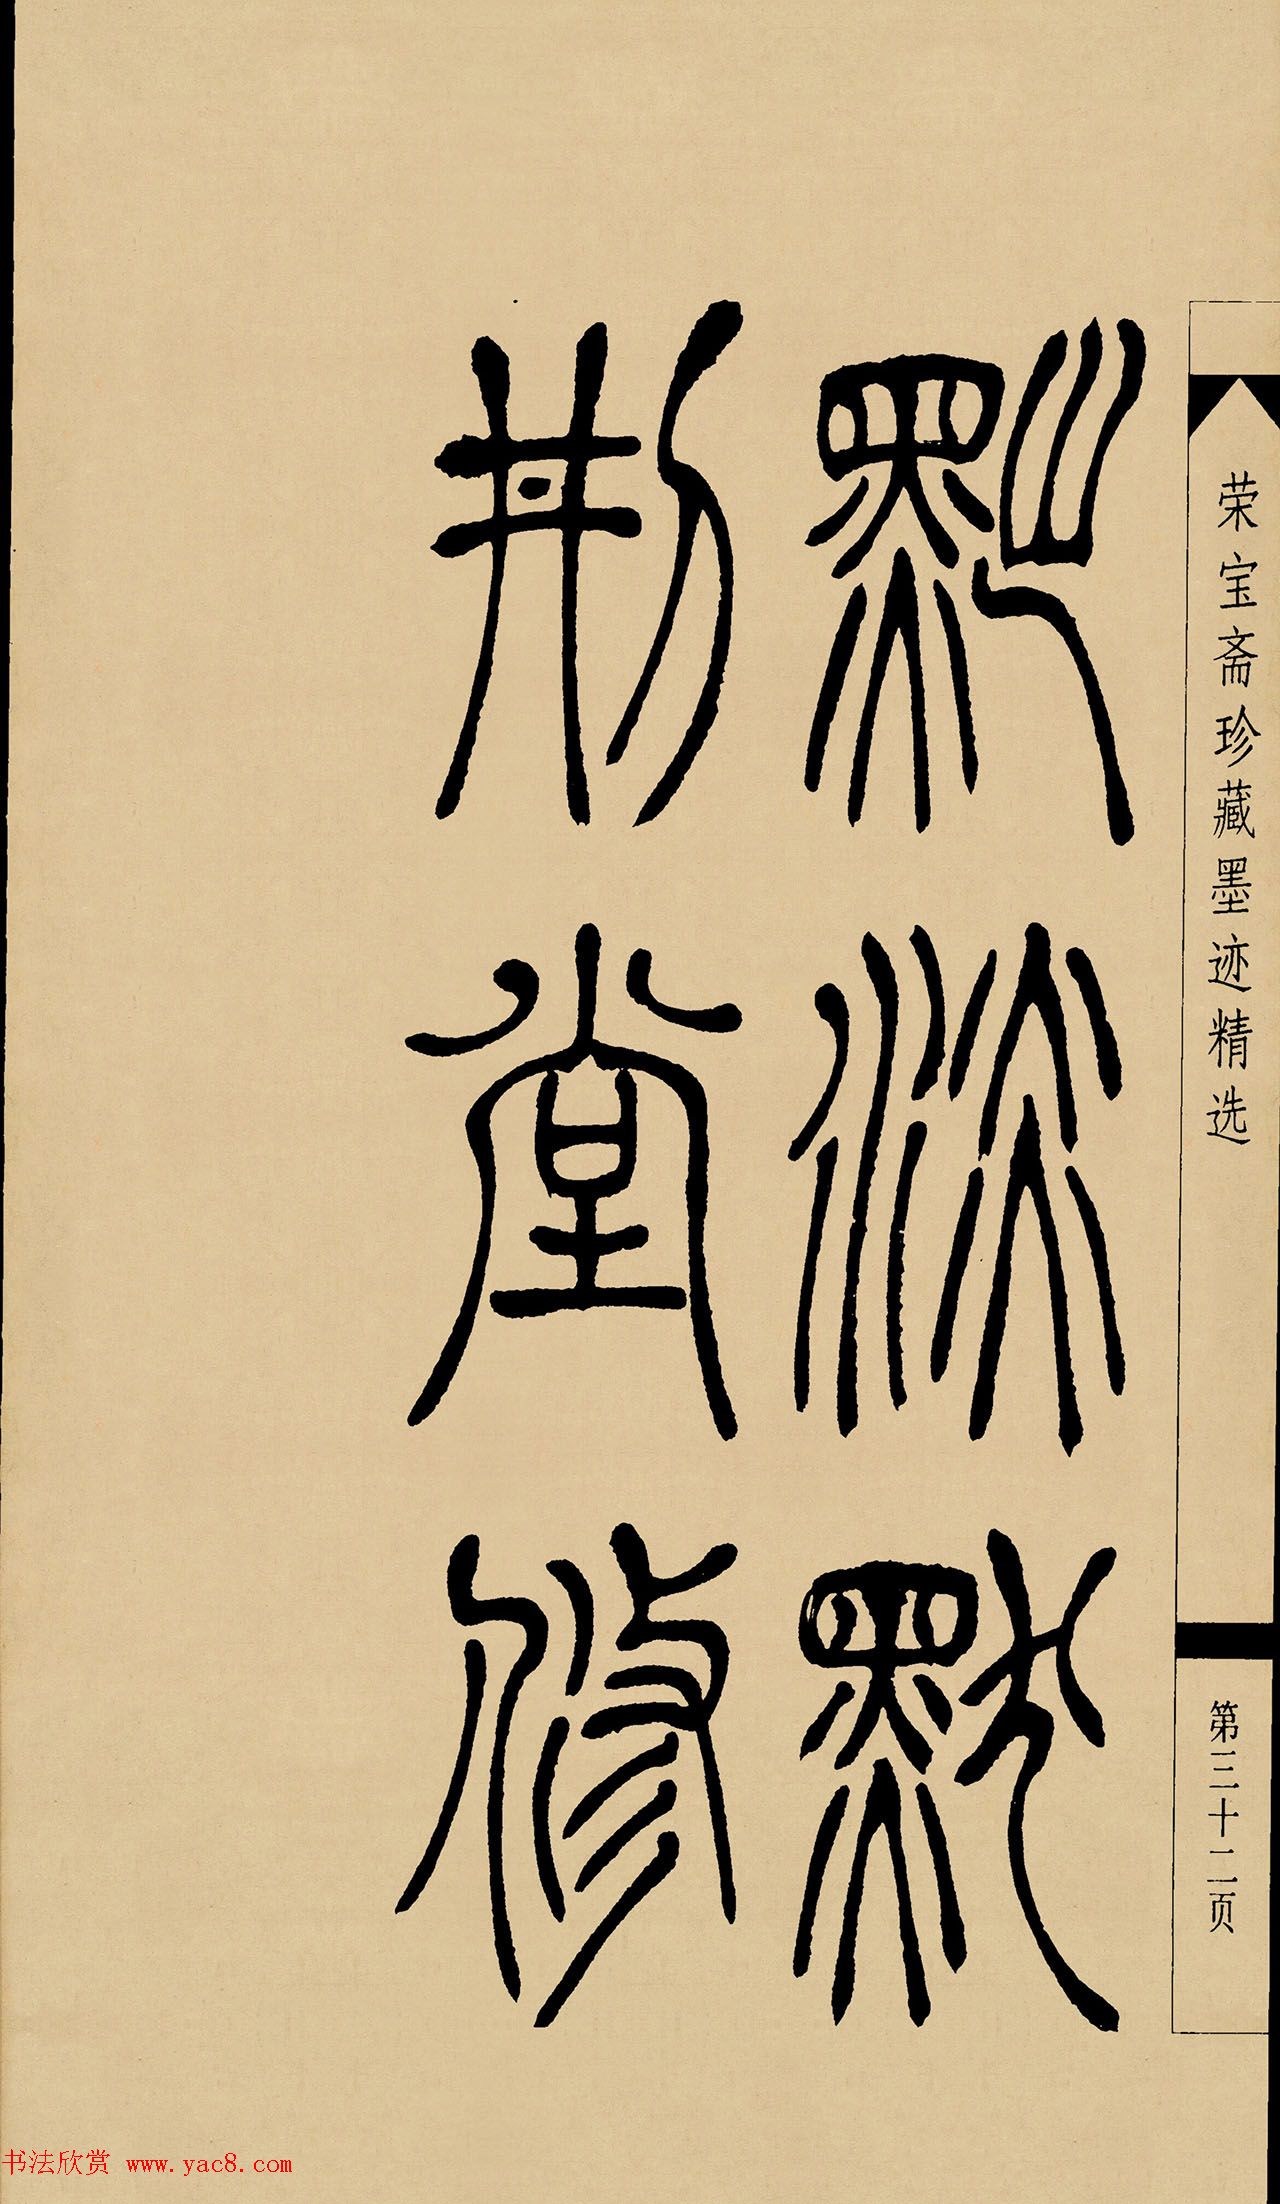 荣宝斋珍藏墨迹精选
第三十二页
黜淡默
刑堂修
书法欣赏 www.yac8.com